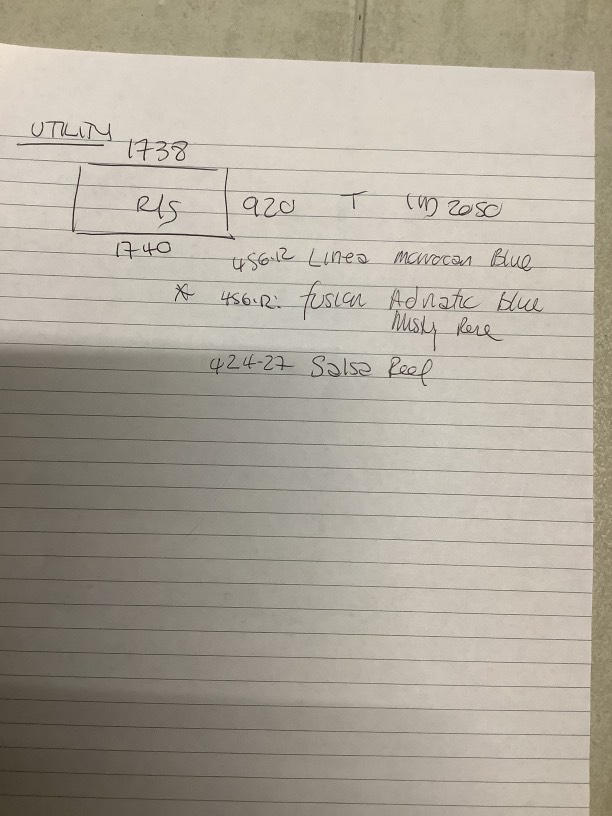 UTILITY
1738
R/S 920 T (M) 2050
1740
456.12 Linea morrocan Blue
* 456.12: fusion Adriatic blue
Misty
424-27 Salsa Reef